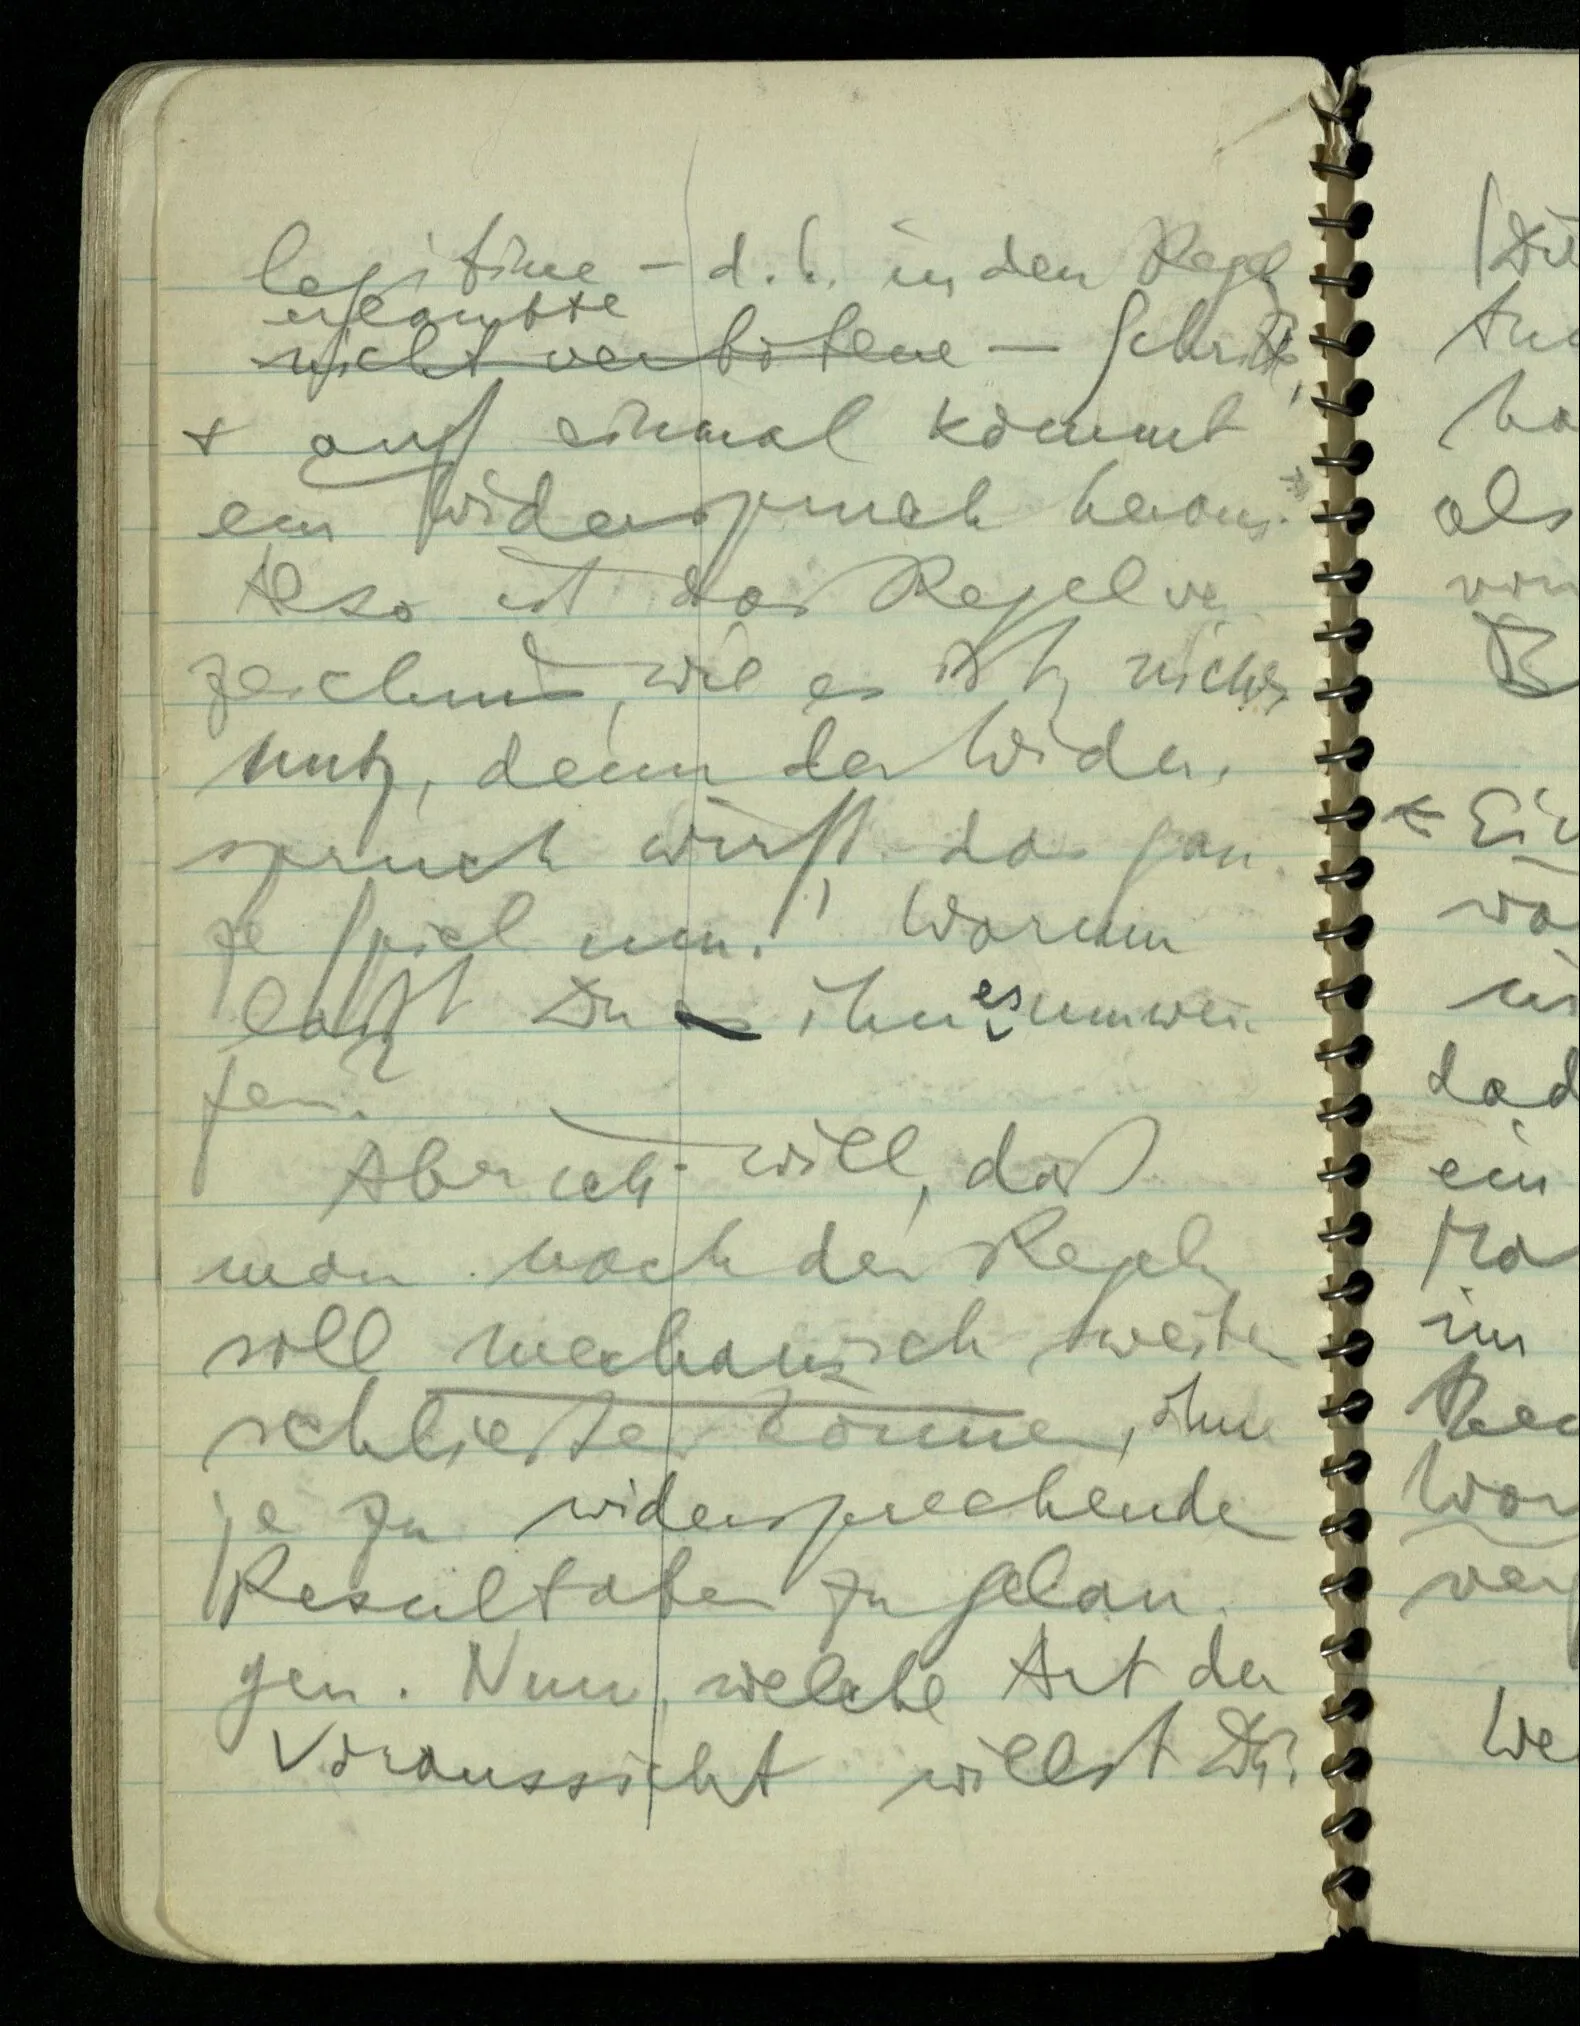 legitime – d.h. in den Regeln
erlaubte
nicht verbotene – Schritte,
& auf einmal kommt
ein Widerspruch heraus.
Also ist das Regelver-
zeichnis, wie es ist, nichts
nutz, denn der Wider-
spruch wirft das gan-
ze Spiel um!" Warum
laßt Du ihn es umwer-
fen?
Aber ich will, daß
man nach der Regel
soll mechanisch weiter
schließen können, ohne
je zu widersprechenden
Resultaten zu gelan-
gen. Nun, welche Art der
Voraussicht willst Du?
(Die
als
von
B
* Ein
ein
im
We